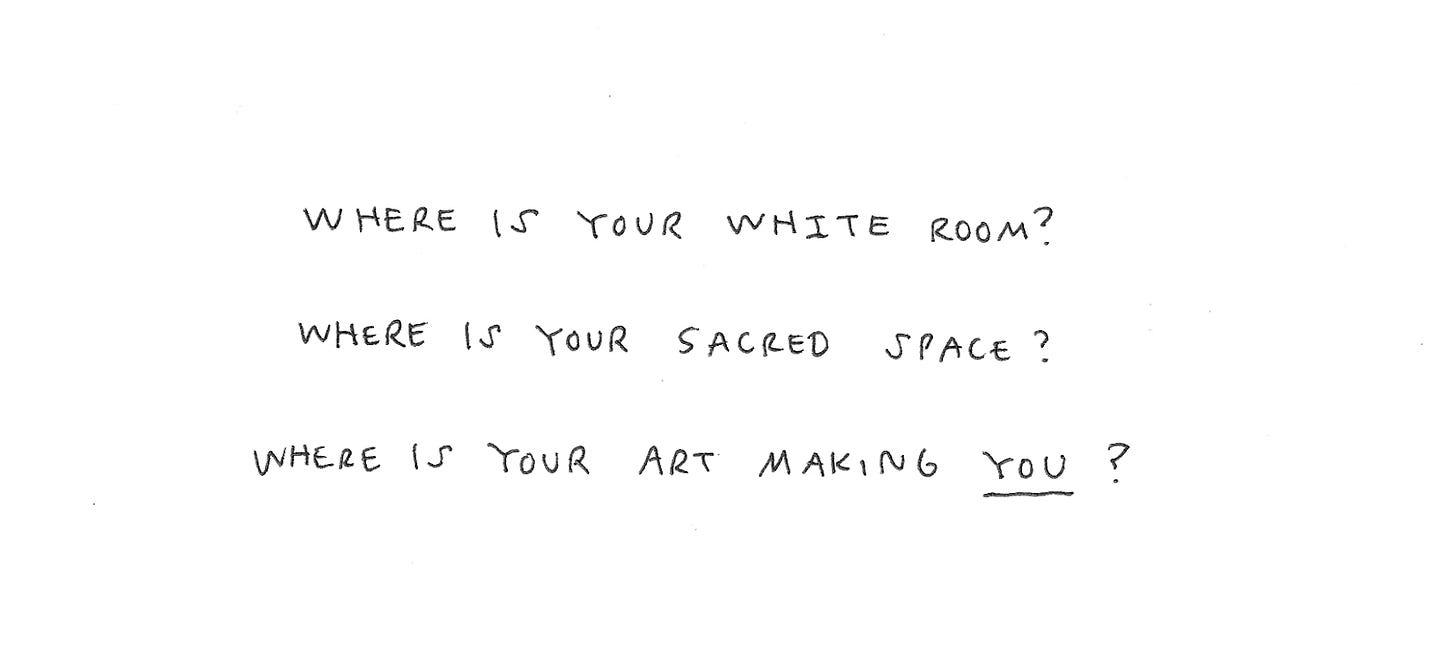 WHERE IS YOUR WHITE ROOM?
WHERE IS YOUR SACRED SPACE?
WHERE IS YOUR ART MAKING YOU?